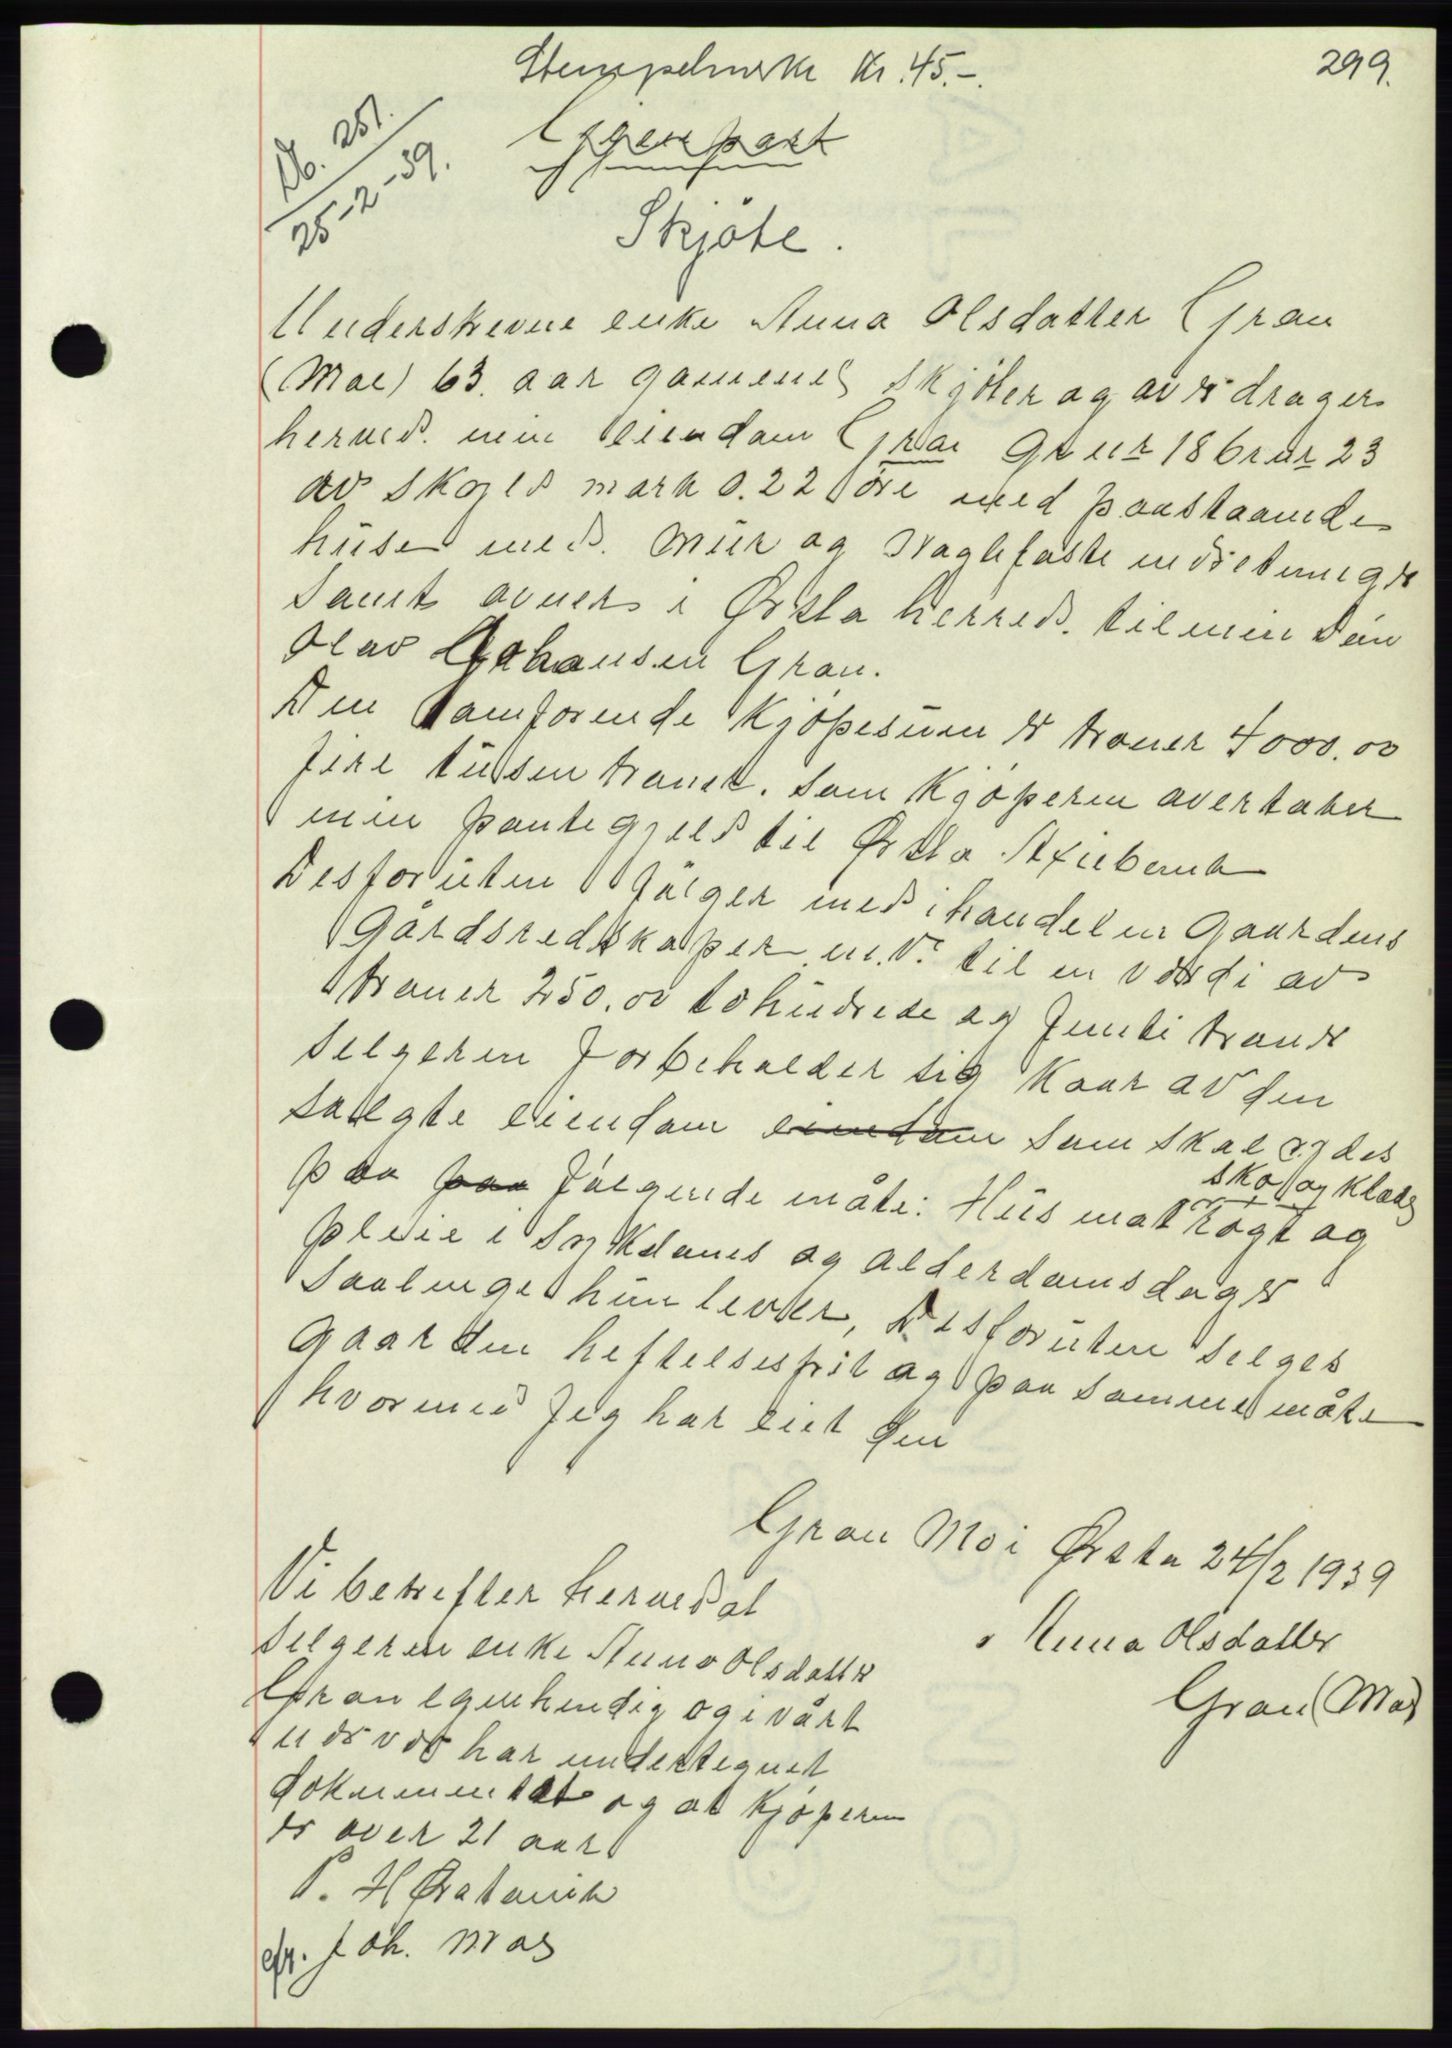 Stempelmerke Kr. 45.-.
299.
Db. 251.
25-2-39.
Gjenpart
Skjøte.
Underskrevne enke Anna Olsdatter Gran
(Moe) 63 aar gammel skjøter og overdrager
herved min eiendom Gran Gr nr 18 br nr 23
av skyld mark 0.22 øre med paastaaende
huse med mur og naglefaste indretninger
samt avner i Ørsta herred. til min søn
Olav Johansen Gran.
Den omforende kjøpesum er kroner 4000.00
fire tusen kroner. som kjøperen overtaker
min pantegjeld til Ørsta
Desforuten følger med i handelen gaardens
gårdsredskaper m.v. til en verdi av
kroner 250.00 tohundrede og femti kroner
selgeren forbeholder sig Kaar av den
solgte eiendom eiendom som skal ydes
paa paa følgende måte: Hus mat røgt og
sko og klæder
pleie i sykdoms og alderdomsdager
saalenge hun lever, Desforuten selges
gaarden heftelsesfrit og paa samme måte
hvormed Jeg har eiet den
Gran Mo i Ørsta 24/2 1939
Anna Olsdatter
Gran (Mo)
Vi bekrefter herved at
selgeren enke Anna Olsdatter
Gran egenhendig og i vårt
nervær har undertegnet
dokumentet og at kjøperen
er over 21 aar
P. H Ørstavik
Joh. Moe